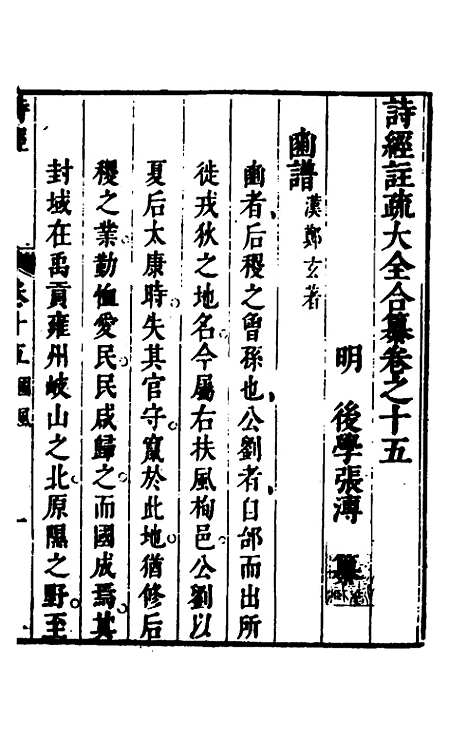 詩經註疏大全合纂卷之十五
明　後學張溥　纂
豳譜 漢鄭玄著
豳者后稷之曾孫也公劉者自邰而出所
徙戎狄之地名今屬右扶風栒邑公劉以
夏后太康時失其官守竄於此地猶修后
稷之業勤恤愛民民咸歸之而國成焉其
封域在禹貢雍州岐山之北原隰之野至
詩經　卷十五　國風　一